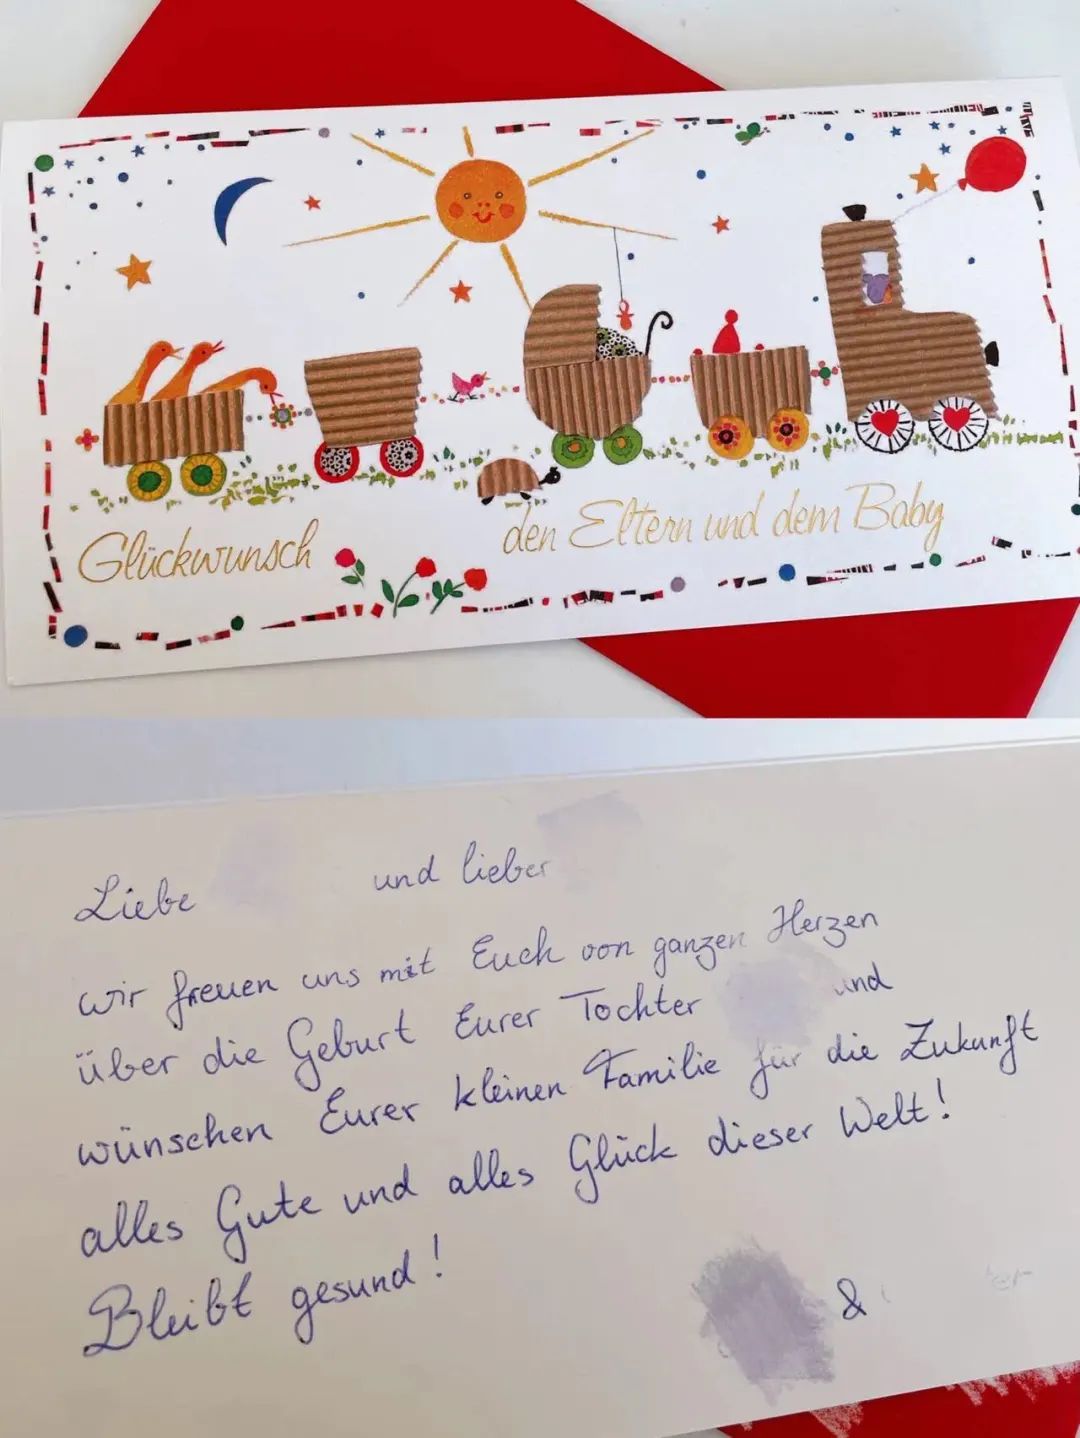 Glückwunsch den Eltern und dem Baby
Liebe und lieber
wir freuen uns mit Euch von ganzen Herzen
über die Geburt Eurer Tochter und
wünschen Eurer kleinen Familie für die Zukunft
alles Gute und alles Glück dieser Welt!
Bleibt gesund!
&